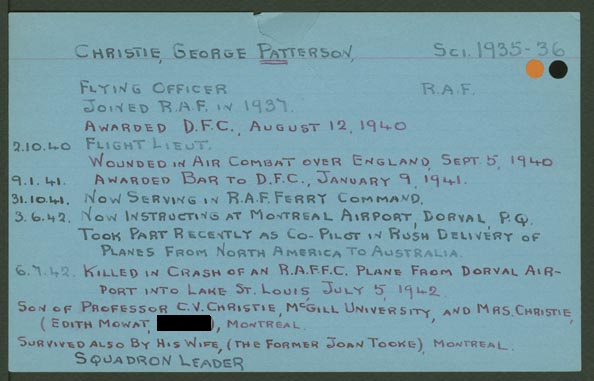 CHRISTIE, GEORGE PATTERSON, SCI. 1935-36
FLYING OFFICER R.A.F.
JOINED R.A.F. IN 1937.
AWARDED D.F.C., AUGUST 12, 1940
2.10.40 FLIGHT LIEUT.
WOUNDED IN AIR COMBAT OVER ENGLAND, SEPT. 5, 1940
9.1.41. AWARDED BAR TO D.F.C., JANUARY 9, 1941.
31.10.41. NOW SERVING IN R.A.F. FERRY COMMAND.
3.6.42. NOW INSTRUCTING AT MONTREAL AIRPORT, DORVAL, P.Q.
TOOK PART RECENTLY AS CO-PILOT IN RUSH DELIVERY OF
PLANES FROM NORTH AMERICA TO AUSTRALIA.
6.7.42. KILLED IN CRASH OF AN R.A.F.F.C. PLANE FROM DORVAL AIR-
PORT INTO LAKE ST. LOUIS JULY 5, 1942.
SON OF PROFESSOR C.V. CHRISTIE, MCGILL UNIVERSITY, AND MRS. CHRISTIE,
(EDITH MOWAT, ), MONTREAL.
SURVIVED ALSO BY HIS WIFE, (THE FORMER JOAN TOOKE), MONTREAL.
SQUADRON LEADER